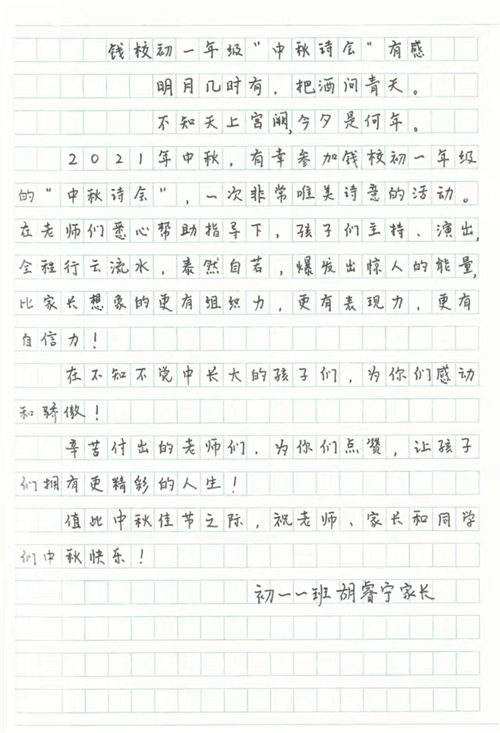 钱校初一年级"中秋诗会"有感
明月几时有，把酒问青天。
不知天上宫阙,今夕是何年。
2021年中秋，有幸参加钱校初一年级
的"中秋诗会"，一次非常唯美诗意的活动。
在老师们悉心帮助指导下，孩子们主持、演出,
全程行云流水，泰然自若，爆发出惊人的能量,
比家长想象的更有组织力，更有表现力，更有
自信力！
在不知不觉中长大的孩子们，为你们感动
和骄傲！
辛苦付出的老师们，为你们点赞，让孩子
们拥有更精彩的人生！
值此中秋佳节之际，祝老师、家长和同学
们中秋快乐！
初一一班胡睿宁家长